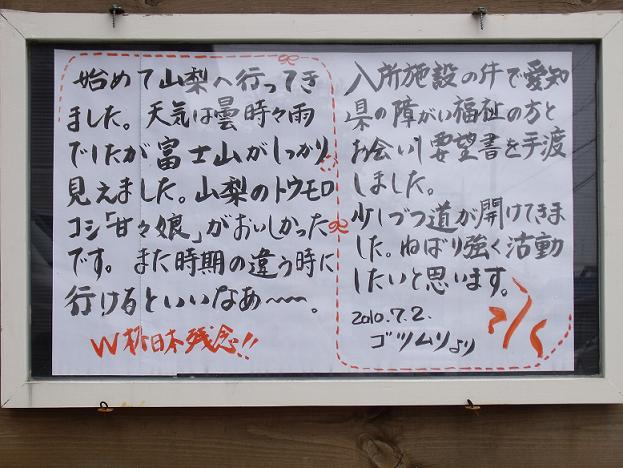 始めて山梨へ行ってき
ました。天気は曇時々雨
でしたが富士山がしっかり
見えました。山梨のトウモロ
コシ「甘々娘」がおいしかった
です。また時期の違う時に
行けるといいなあ〜〜。
W杯日本残念!!
入所施設の件で愛知
県の障がい福祉の方と
お会いし要望書を手渡
しました。
少しづつ道が開けてきま
した。ねばり強く活動
したいと思います。
2010.7.2.
ゴツムリより